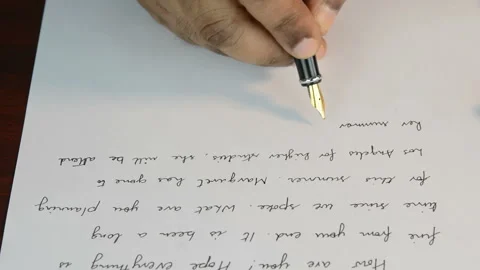 How are you? Hope everything is
fine from you end. It is been a long
time since we spoke. What are you planning
for this summer. Margaret has gone to
Los Angeles for higher studies. she will be attend
her summer